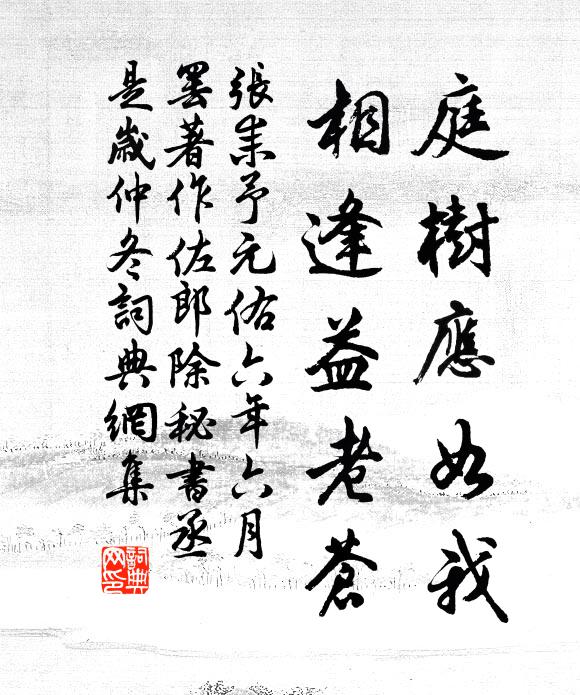 庭樹應如我
相逢益老蒼
張耒予元佑六年六月
罷著作佐郎除秘書丞
是歲仲冬詞典網集
詞典网印